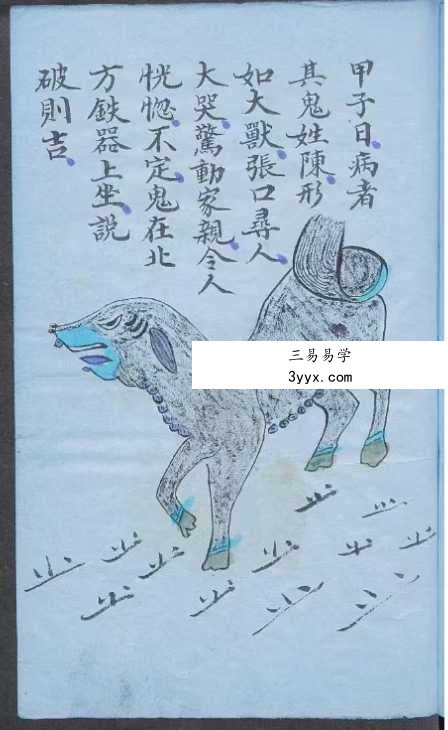 甲子日病者
其鬼姓陳形
如大獸張口尋人
大哭驚動家親令人
恍惚不定鬼在北
方鉄器上坐說
破則吉
三易易学
3yyx.com